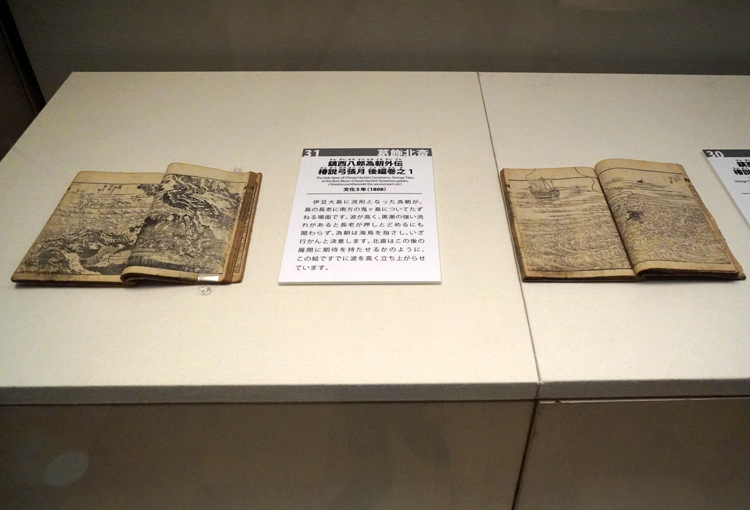 31 葛飾北斎
鎮西八郎為朝外伝
椿説弓張月 後編巻之1
文化5年(1808)
伊豆大島に流刑となった為朝が、
島の長老に南方の鬼ヶ島についてたず
ねる場面です。波が高く、黒潮の強い流
れがあると長老が押しとどめるにも
関わらず、為朝は海鳥を指さし、いざ
行かんと決意します。北斎はこの後の
展開に期待を持たせるかのように、
この絵ですでに波を高く立ち上がらせ
ています。
30
鎮西
椿説